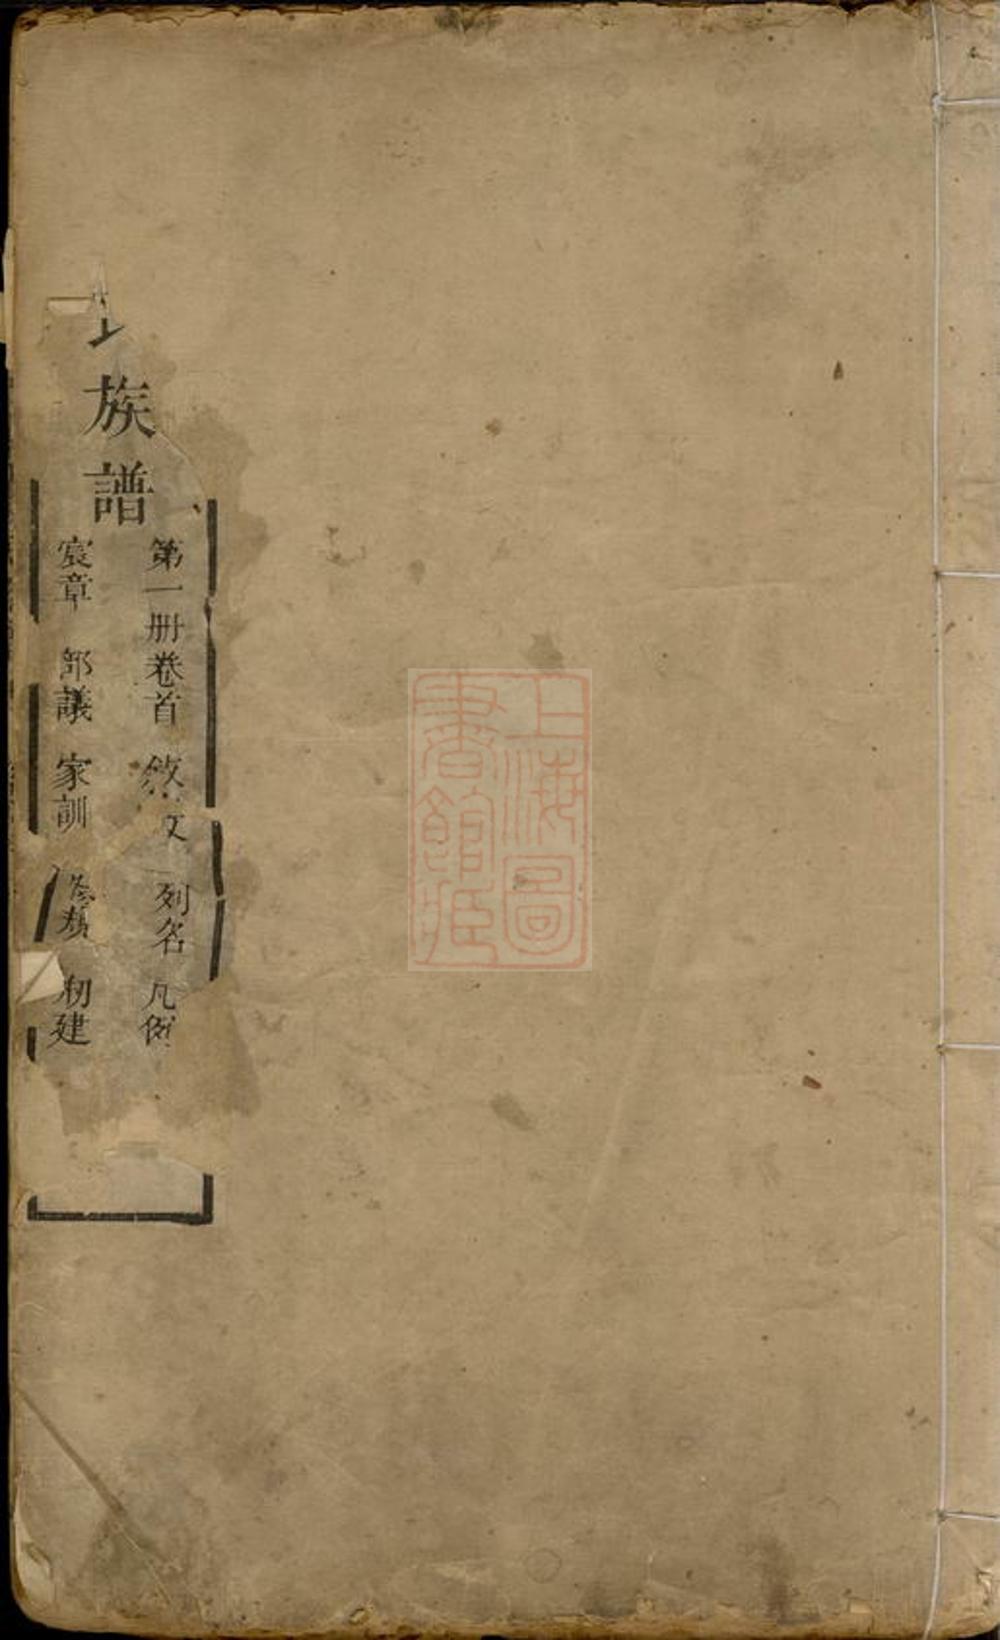 族譜
第一册卷首 敘文 列名 凡例
宸章 部議 家訓 建
上海圖
書館藏